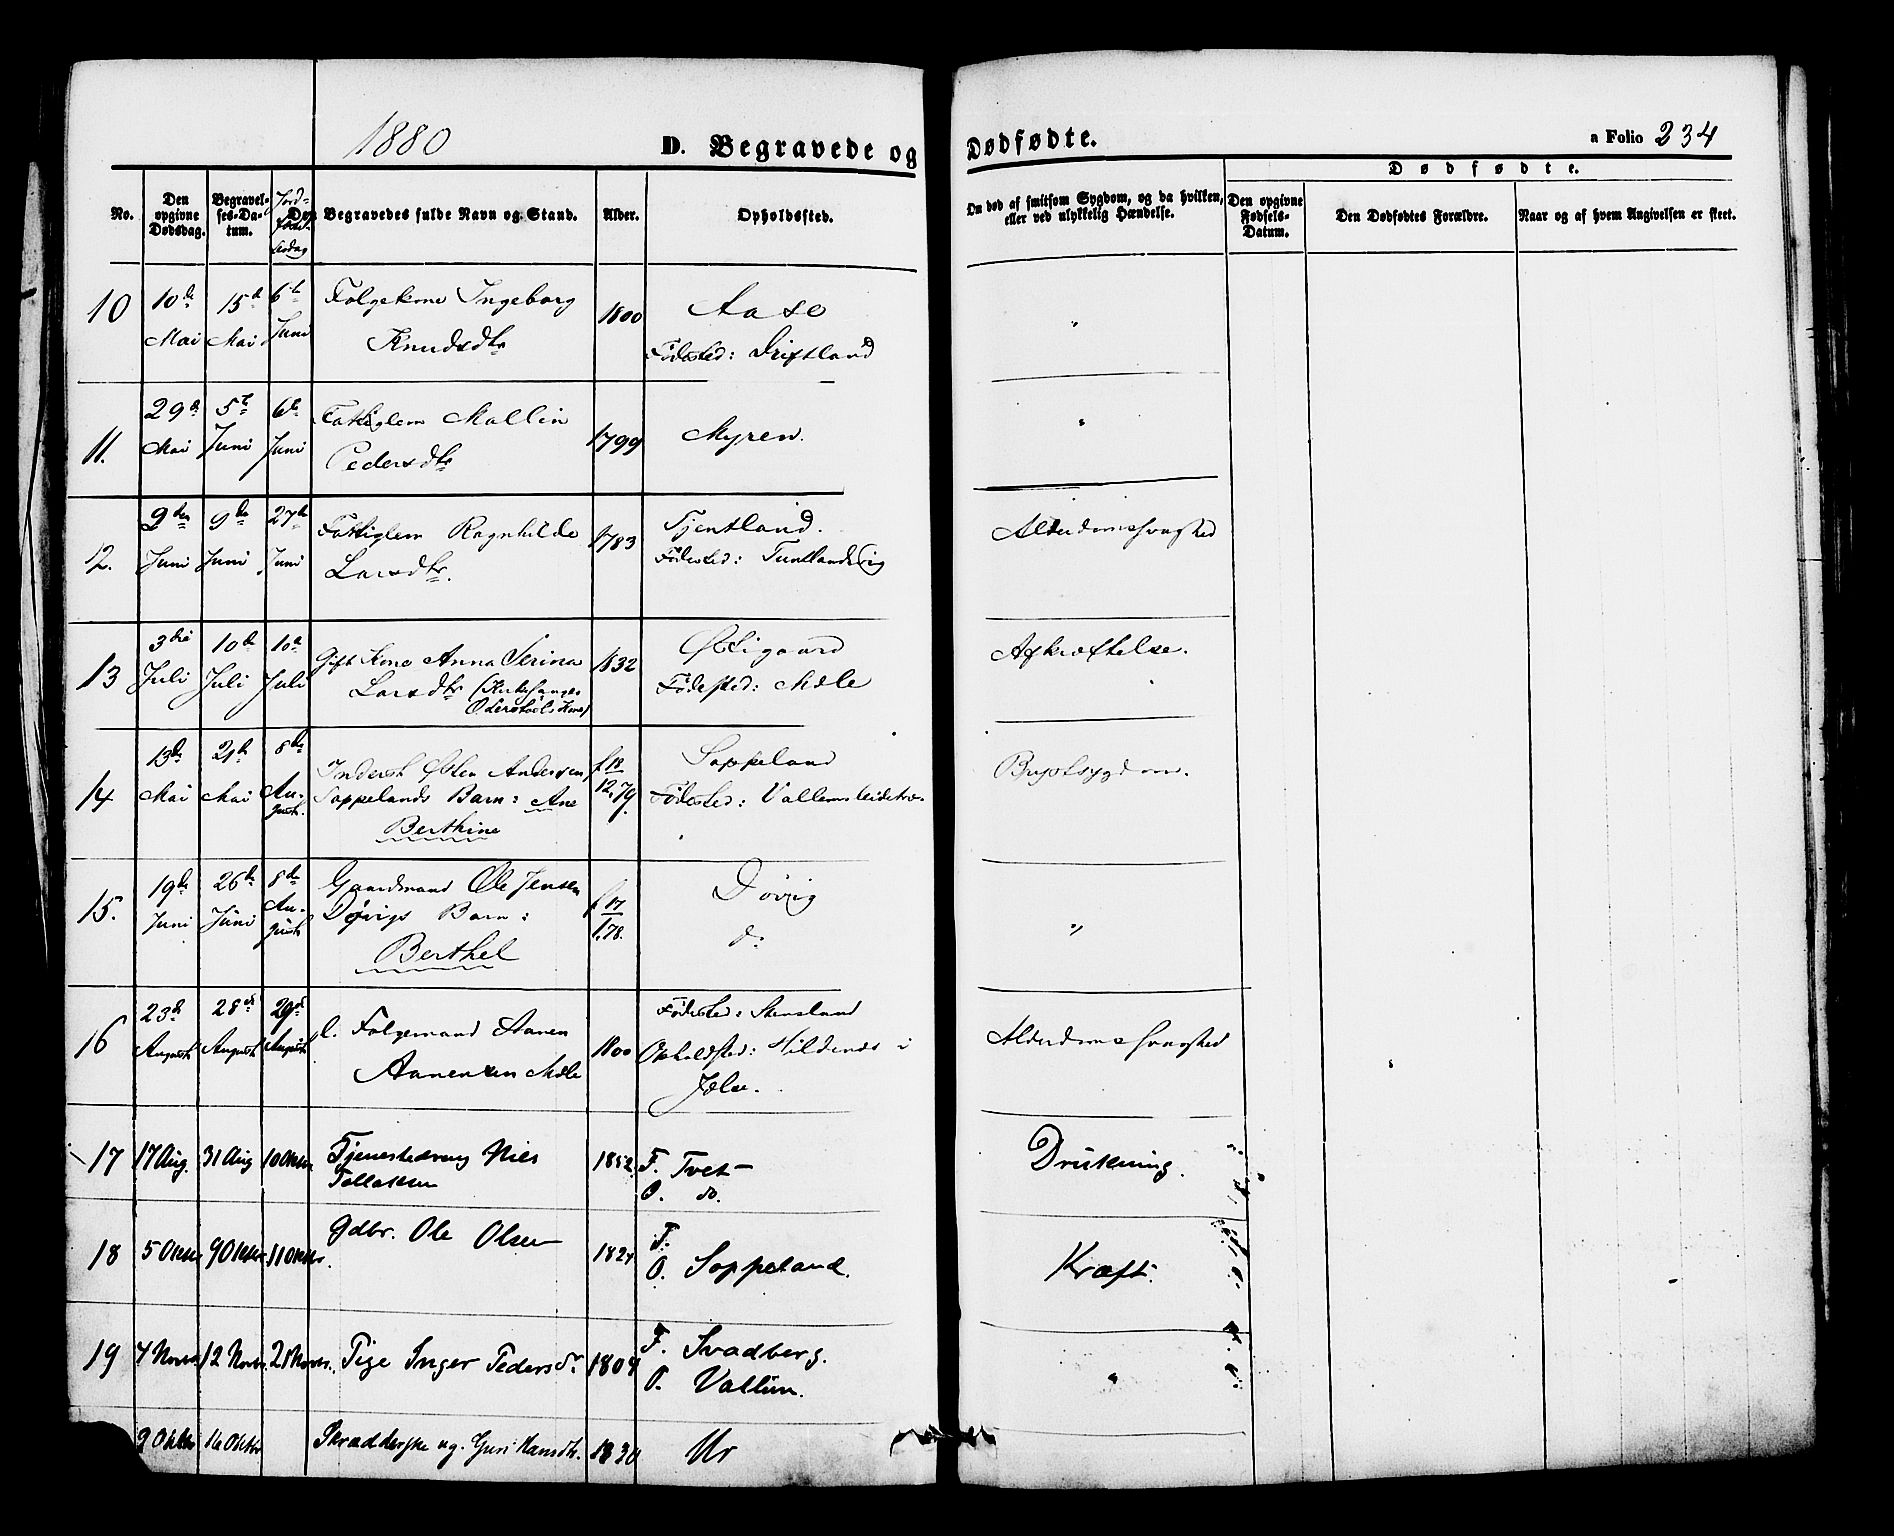 1880
D. Begravede og Dødfødte.
a Folio 234
Dødfødte.
No.
Den opgivne Dødsdag.
Begravelses-Datum.
Den Begravedes fulde Navn og Stand.
Alder.
Opholdssted.
Om død af smitsom Sygdom, og da hvilken, eller ved ulykkelig Hændelse.
Den opgivne Fødsels-Datum.
Den Dødfødtes Forældre.
Naar og af hvem Angivelsen er skeet.
10 10de Mai 15de Mai 6te Juni Folgekone Ingeborg 1800 Aase
Knudsdtr Fødested:
11. 29de Mai 5te Juni 6te Juni Fattiglem Mallin 1799 Myren.
Pedersdtr
12. 9den Juni 9de Juni 27de Juni Fattiglem Ragnhilde 1783 Tjentland. Alderdomssvaghed
Larsdtr. Fødested:
13 3die Juli 10de Juli 10de Juli Gift Kone Anna Serina 1832 Østigaard Afkræftelse.
Larsdtr (Kirkesanger Fødested: Mæle
Kone)
14 13de Mai 21de Mai 8de August Inderst Østen Andersen f. 18/12 79. Sappeland Brystsygdom.
Sappelands Barn: Ane Fødested:
Berthine
15. 19de Juni 26de Juni 8de August Gaardmand Ole Jensen f. 17/1 78. Døvig
Døvigs Barn: do
Berthel
16 23de August 28de August 29de August Folgemand Aanen 1800 Fødested: Stensland Alderdomssvaghed
Aanensen Mæle Opholdsted: Hildenes i
Jelse.
17 17 Aug. 31 Aug 10 Oktbr Tjenestedreng Niels 1852 F. Tvet Drukning.
Tollaksen O. do.
18 5 Oktbr 9 Oktbr 11 Oktbr. Gdbr. Ole Olsen 1824 F.
O. Sappeland. Kræft.
19 4 Novbr 12 Novbr. 21 Novbr. Pige Inger Pedersdr 1804 F. Svadberg.
O. Vallim.
9 Oktbr 16 Oktbr Guri Hansdtr. 1830 Ur